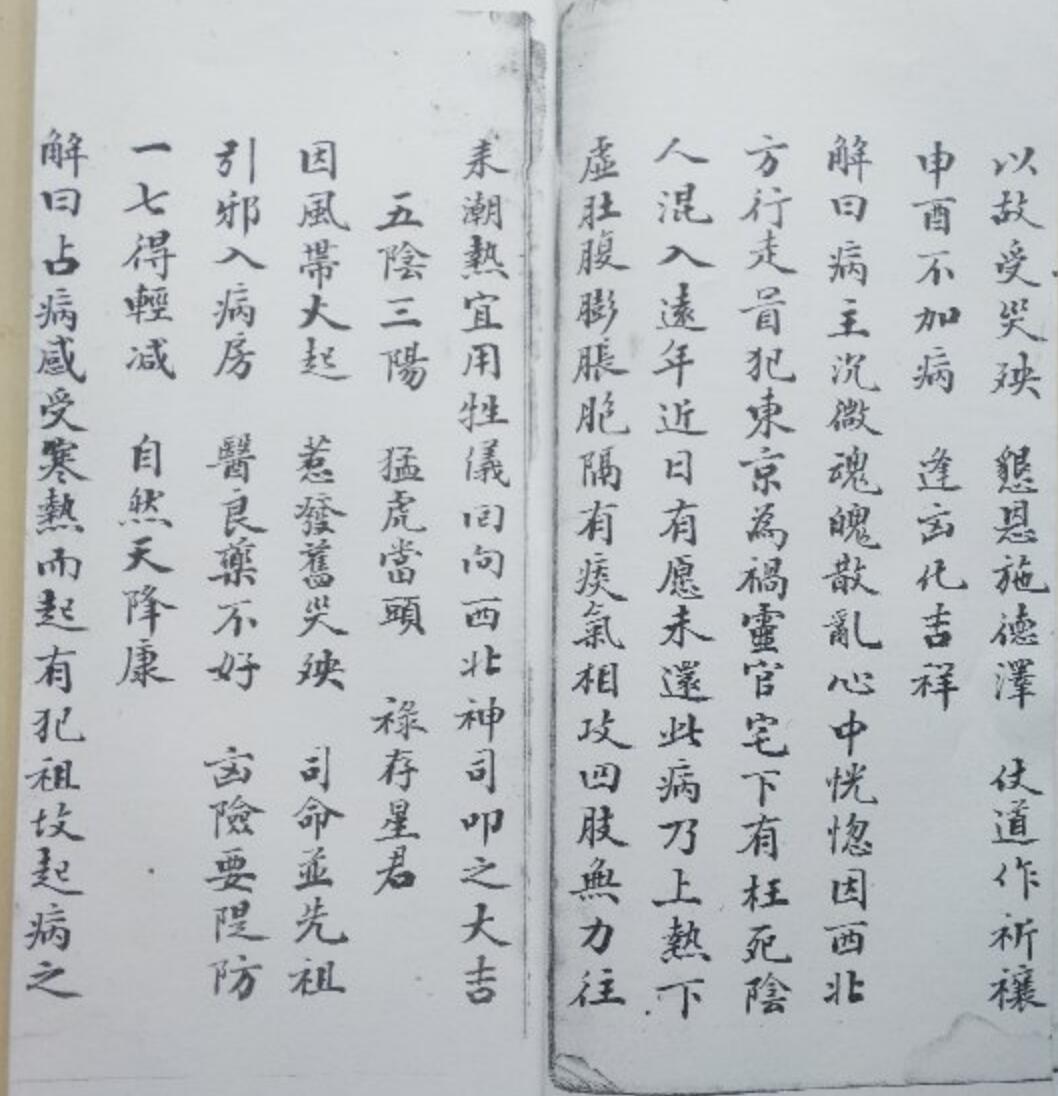 以故受災殃　懇恩施德澤　仗道作祈禳
申酉不加病　逢凶化吉祥
解曰病主沉微魂魄散亂心中恍惚因西北
方行走冒犯東京為禍靈官宅下有枉死陰
人混入遠年近日有愿未還此病乃上熱下
虛肚腹膨脹胞隔有痰氣相攻四肢無力往
来潮熱宜用牲儀回向西北神司叩之大吉
五陰三陽　猛虎當頭　祿存星君
因風帶火起　惹發舊災殃　司命並先祖
引邪入病房　醫良藥不好　凶險要隄防
一七得輕减　自然天降康
解曰占病感受寒熱而起有犯祖坟起病之